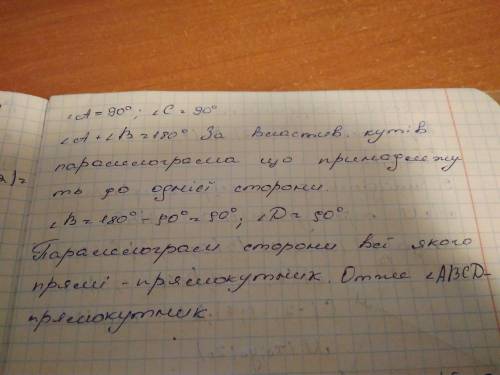 ∠A = 90°; ∠C = 90°
∠A + ∠B = 180° За властив. кутів
паралелограма що принадлежу
ть до однієї сторони.
2)=
∠B = 180° - 90° = 90°; ∠D = 90°
Паралелограм сторони всі якого
прямі - прямокутник. Отже ∠ABCD-
прямокутник.